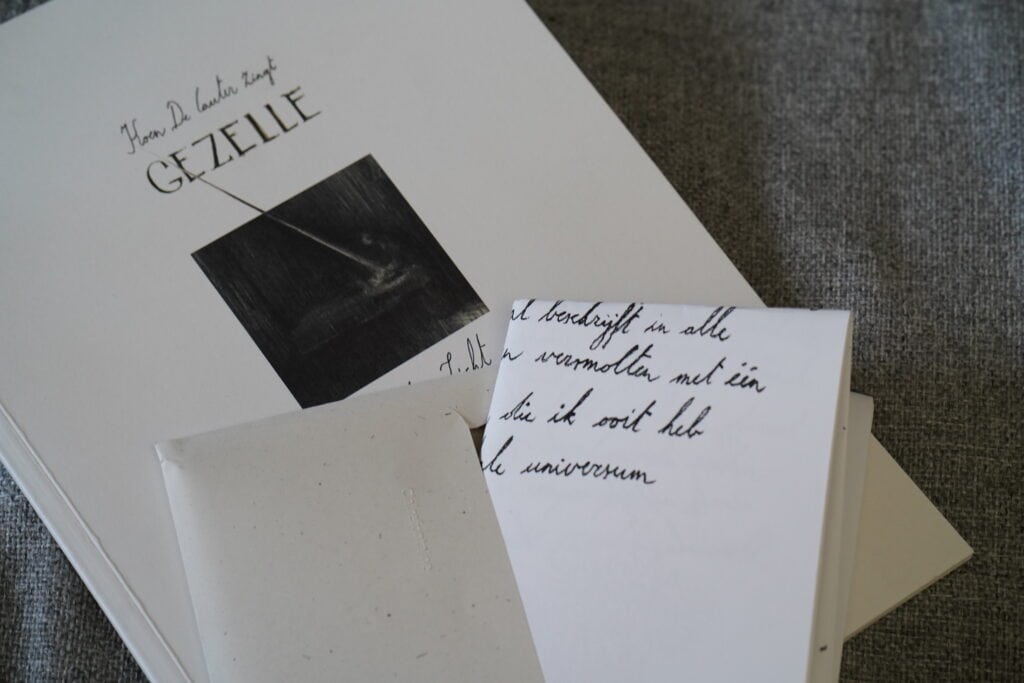 Koen De Cauter zingt
GEZELLE
Licht
beschrijft in alle
versmolten met één
die ik ooit heb
universum